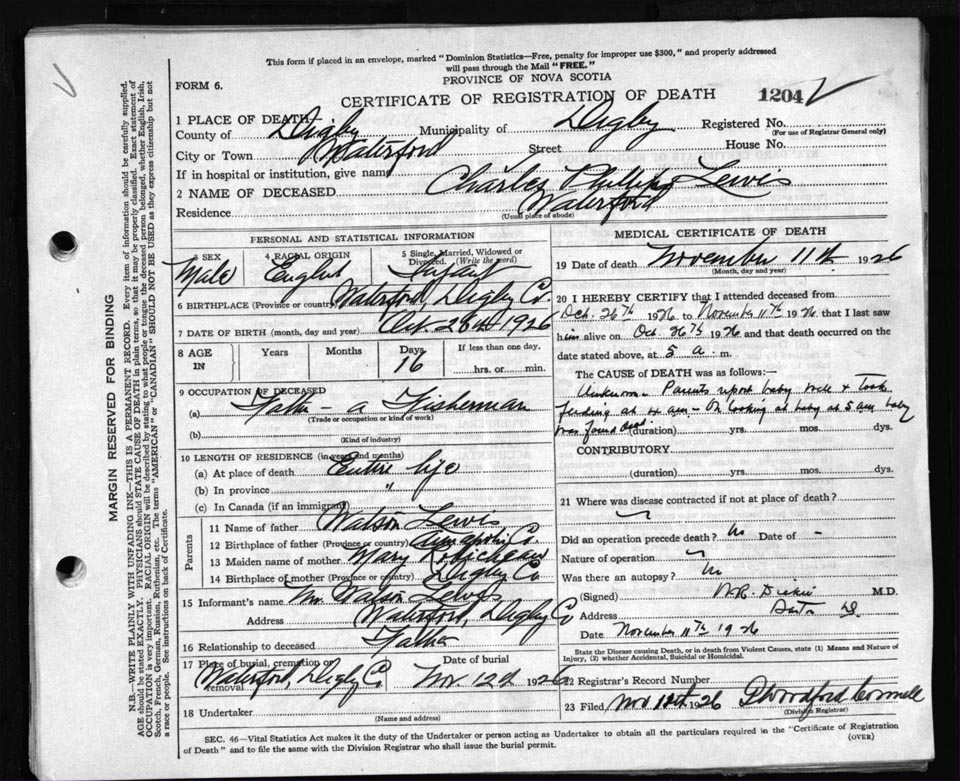 This form if placed in an envelope, marked "Dominion Statistics—Free, penalty for improper use $300," and properly addressed
will pass through the Mail "FREE."
FORM 6.
PROVINCE OF NOVA SCOTIA
CERTIFICATE OF REGISTRATION OF DEATH 1204
1 PLACE OF DEATH
County of Digby Municipality of Digby Registered No.
(For use of Registrar General only)
City or Town Waterford Street House No.
If in hospital or institution, give name
2 NAME OF DECEASED Charles Phillip Lewis
Residence Waterford
(Usual place of abode)
PERSONAL AND STATISTICAL INFORMATION
3 SEX Male
4 RACIAL ORIGIN English
5 Single, Married, Widowed or Divorced. (Write the word) Infant
6 BIRTHPLACE (Province or country) Waterford, Digby Co.
7 DATE OF BIRTH (month, day and year) Oct. 26th 1926
8 AGE IN Years Months Days 16 If less than one day, hrs. or min.
9 OCCUPATION OF DECEASED
(a) Father - a Fisherman
(Trade or occupation or kind of work)
(b)
(Kind of industry)
10 LENGTH OF RESIDENCE (in years and months)
(a) At place of death Entire life
(b) In province "
(c) In Canada (if an immigrant)
Parents
11 Name of father Watson Lewis
12 Birthplace of father (Province or country) Annapolis Co.
13 Maiden name of mother Mary Robicheau
14 Birthplace of mother (Province or country) Digby Co
15 Informant's name Mr. Watson Lewis
Address Waterford, Digby Co
16 Relationship to deceased Father
17 Place of burial, cremation or removal Waterford, Digby Co. Date of burial Nov. 12th 1926
18 Undertaker
(Name and address)
MEDICAL CERTIFICATE OF DEATH
19 Date of death November 11th 1926
(Month, day and year)
20 I HEREBY CERTIFY that I attended deceased from
Oct. 26th 1926 to November 11th 1926 that I last saw
him alive on Oct. 26th 1926 and that death occurred on the
date stated above, at 5 a. m.
The CAUSE of DEATH was as follows:—
Unknown - Parents report baby well & took
feeding at 4 am - On looking at baby at 5 am baby
was found dead (duration) yrs. mos. dys.
CONTRIBUTORY
(duration) yrs. mos. dys.
21 Where was disease contracted if not at place of death?
Did an operation precede death? No Date of -
Nature of operation
Was there an autopsy? No
(Signed) M.D.
Address
Date November 11th 1926
State the Disease causing Death, or in death from Violent Causes, state (1) Means and Nature of
Injury, (2) whether Accidental, Suicidal or Homicidal.
22 Registrar's Record Number
23 Filed Nov 1926
(Division Registrar)
SEC. 46—Vital Statistics Act makes it the duty of the Undertaker or person acting as Undertaker to obtain all the particulars required in the "Certificate of Registration
of Death" and to file the same with the Division Registrar who shall issue the burial permit.
(OVER)
MARGIN RESERVED FOR BINDING
N.B.—WRITE PLAINLY WITH UNFADING INK—THIS IS A PERMANENT RECORD. Every item of information should be carefully supplied.
AGE should be stated EXACTLY. PHYSICIANS should STATE CAUSE OF DEATH in plain terms, so that it may be properly classified. Exact statement of
OCCUPATION is very important. RACIAL ORIGIN will be described by stating to what people or tongue the deceased person belonged, whether English, Irish,
Scotch, French, German, Russian, Ruthenian, etc. The terms "AMERICAN" or "CANADIAN" SHOULD NOT BE USED as they express citizenship but not
a race or people. See instructions on back of Certificate.